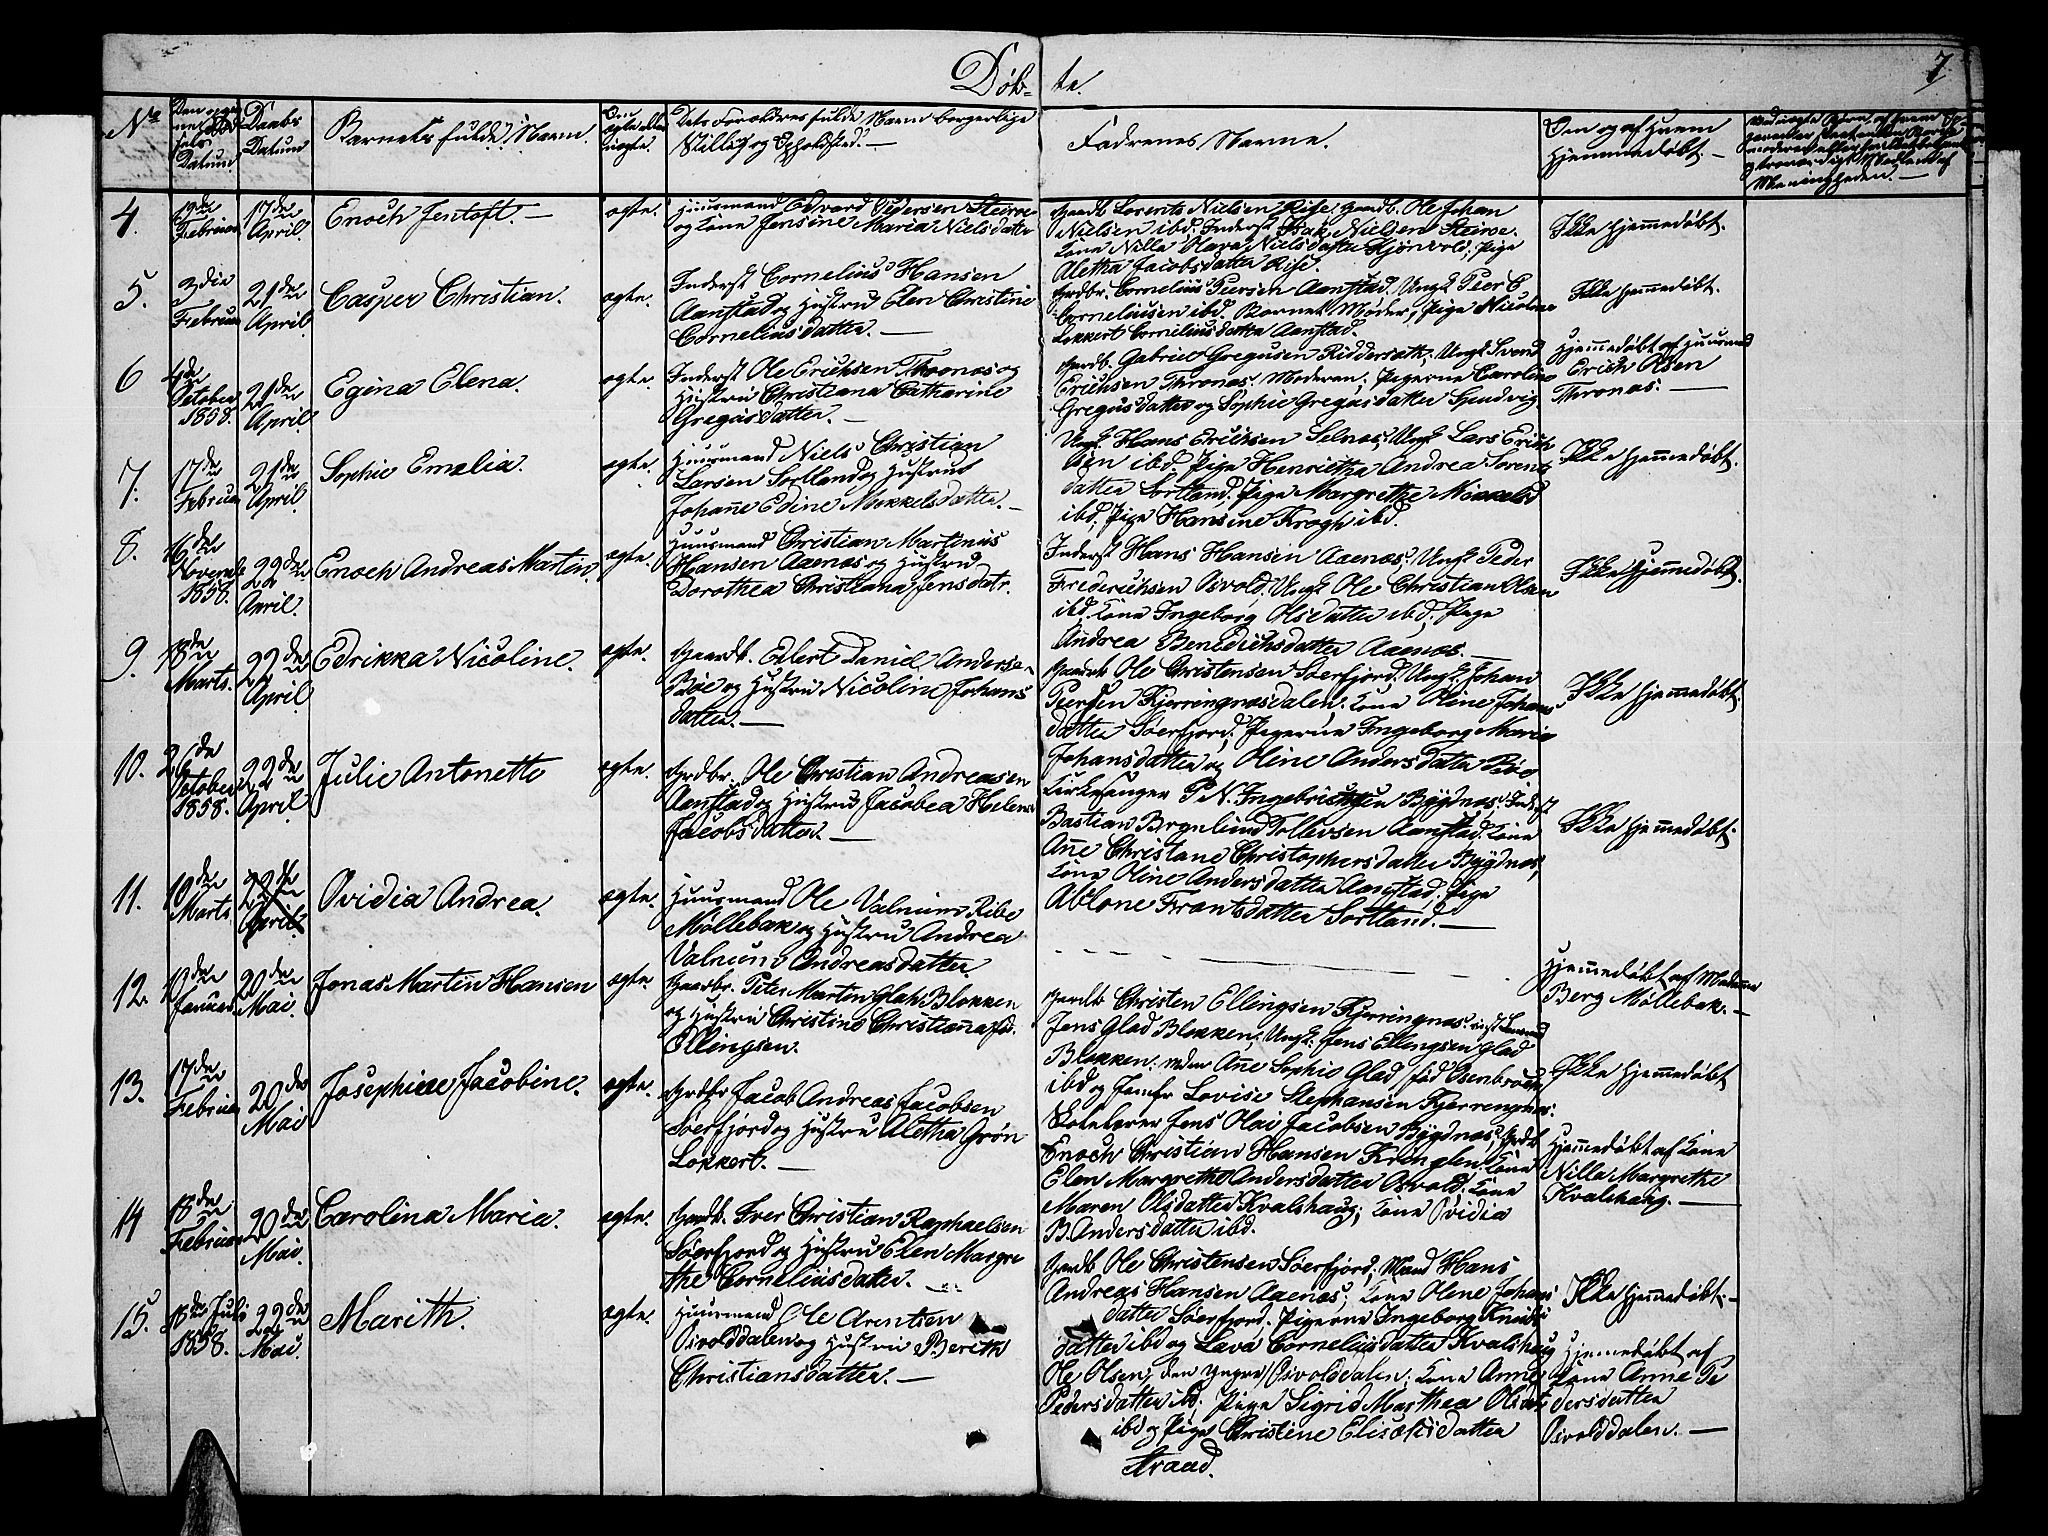 Døb- te.
7
No
Daabs
Datum
Barnets fulde Navn.
Dets Forældres fulde Navn borgerlige
Stilling og Opholdsted. —
Fadrenes Navne.
Om og af hvem
hjemmedøbt. —
Menigheden. —
4.
Februar
17de
April.
Enoch Jentoft. —
ægte.
Huusmand Edvard Pedersen
og Kone Jensine Maria Nielsdatter
Gaardb. Lorents Nielsen Rise, Gaardb. Ole Johan
Nielsen ibd, Inderst Isak Nielsen
Kone Nilla Olava Nielsdatter Kjönvold, Pige
Aletha Jacobsdatter Rise.
Ikke hjemmedøbt.
5.
3die
Februar
21de
April
Casper Christian.
ægte.
Inderst Cornelius Hansen
Aanstad og Hustru Elen Christine
Corneliusdatter. —
Grdbr. Cornelius Peersen Aanstad. Ungk Peer C
Corneliusen ibd. Barnets Moder, Pige Nicoline
Lokkert Corneliusdatter Aanstad.
Ikke hjemmedøbt.
6
4de
October
1858.
21de
April
Egina Elena.
ægte.
Inderst Ole Erichsen Thronæs og
Hustru Christiana Catharine
Gregusdatter. —
Gaardb. Gabriel Gregusen Riddersæth, Ungk Svend
Erichsen Thronæs. Moderen, Pigerne Caroline
Gregusdatter og Sophie Gregusdatter Spndvig.
Hjemmedøbt af Huusmand
Erich Olsen
Thronæs. —
7.
17de
Februar
21de
April
Sophie Emelia.
ægte.
Huusmand Niels Christian
Larsen Sortland og Hustrue
Johanne Edine Mekkelsdatter. —
Ungk. Hans Erichsen Selnæs, Ungk Lars Erich
sen ibd. Pige Henrietha Andrea Sorents
datter Sortland, Pige Margrethe
ibd, Pige Hansine Krogh ibd.
Ikke hjemmedøbt.
8.
16de
Novemb
1858.
22de
April.
Enoch Andreas Martin.
ægte.
Huusmand Christian Martinus
Hansen Aaenæs og Hustru
Dorothea Christiana Jensdatr.
Inderst Hans Hansen Aaenæs, Ungk Peder
Frederichsen Osvold. Ungk Ole Christian Olsen
ibd, Kone Ingeborg Olsdatter ibd, Pige
Andrea Benedichsdatter Aaenæs. —
Ikke hjemmedøbt.
9.
18de
Marts.
22de
April
Edrikka Nicoline.
ægte.
Gaardb. Edert Daniel Anderse-
Bøe og Hustru Nicoline Johans
datter. —
Gaardb Ole Christensen Söerfjord. Ungk. Johan
Peersen Kjerringnæsdalen. Kone Oline Johans
datter Söerfjord, Pigerne Ingeborg Marie
Johansdatter og Oline Andersdatter Böe
Ikke hjemmedøbt.
10.
26de
October
1858.
22de
April
Julie Antonette
ægte.
Grdbr. Ole Christian Andreasen
Aanstad og Hustru Jacobea Helena
Jacobsdatter. —
Kirkesanger P. N. Ingebrichtsen Bøgdnæs, Inderst
Bastian Brynlund Tollevsen Aanstad, Kone
Ane Christane Christophersdatter Bøgdnæs,
Kone Oline Andersdatter Aanstad, Pige
Ablone Frantsdatter Sortland. —
Ikke hjemmedøbt.
11.
10de
Marts.
22de
April
Ovidia Andrea.
ægte.
Huusmand Ole Valnum Ribe
Møllebæk og Hustru Andrea
Valnum Andreasdatter
Hjemmedøbt af Madamme
Berg Møllebæk. —
12.
10de
Januar
20de
Mai.
Jonas Martin Hansen
ægte
Gaardbr. Peter Martin Glad Blokken
og Hustru Christine Christianna fød.
Ellingsen.
Gaardb Christen Ellingsen Kjerringnæs.
Jens Glad Blokken, Ungk: Jens Ellingsen Glad
Blokken: Mdm Ane Sophie Glad fød Osenbroch
ibd og Jomfr Lovise Stephansen Kjerringnæs.
Ikke hjemmedøbt
13.
17de
Februar
20de
Mai
Josephine Jacobine.
ægte.
Grdbr Jacob Andreas Jacobsen
Söerfjord og Hustru Aletha Grön
Lokkert. —
Skolelærer Jens Olai Jacobsen Bøgdnæs, Grdb
Enoch Christian Hansen Kringlen. Kone
Elen Margrethe Andersdatter Osvold, Kone
Maren Olsdatter Kvalshaug, Kone Ovidia
B. Andersdatter ibd.
Hjemmedøbt af Kone
Nilla Margrethe
Kvalshaug. —
14
18de
Februar
20de
Mai.
Carolina Maria.
ægte.
Gaardb. Iver Christian Raphaelsen
Söerfjord og Hustru Elen Margre
the Corneliusdatter. —
Gaardb Ole Christensen Söerfjord, Mand Hans
Andreas Hansen Aaenæs, Kone Olene Johans
datter Söerfjord, Pigerne Ingeborg Knuds
datter ibd og Lava Corneliusdatter Kvalshaug
Ikke hjemmedøbt. —
15.
18de Juli
1858.
22de
Mai.
Marith.
ægte.
Huusmand Ole Arntsen
Osvolddalen og Hustru Berith
Christiansdatter. —
Ole Olsen, den yngre Osvolddalen, Kone Anne
Pedersdatter ibd, Pige Sigrid Marthea Olsdtr
ibd og Pige Christine Eliseusdatter
Straad.
Hjemmedøbt af
Kone Anne Pe
dersdatter
Osvolddalen. —